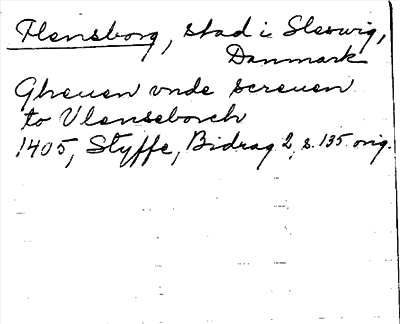 Flensborg, stad i Sleswig,
Danmark
Gheuen vnde screuen
to Vlenseborch
1405, Styffe, Bidrag 2, s. 135. orig.